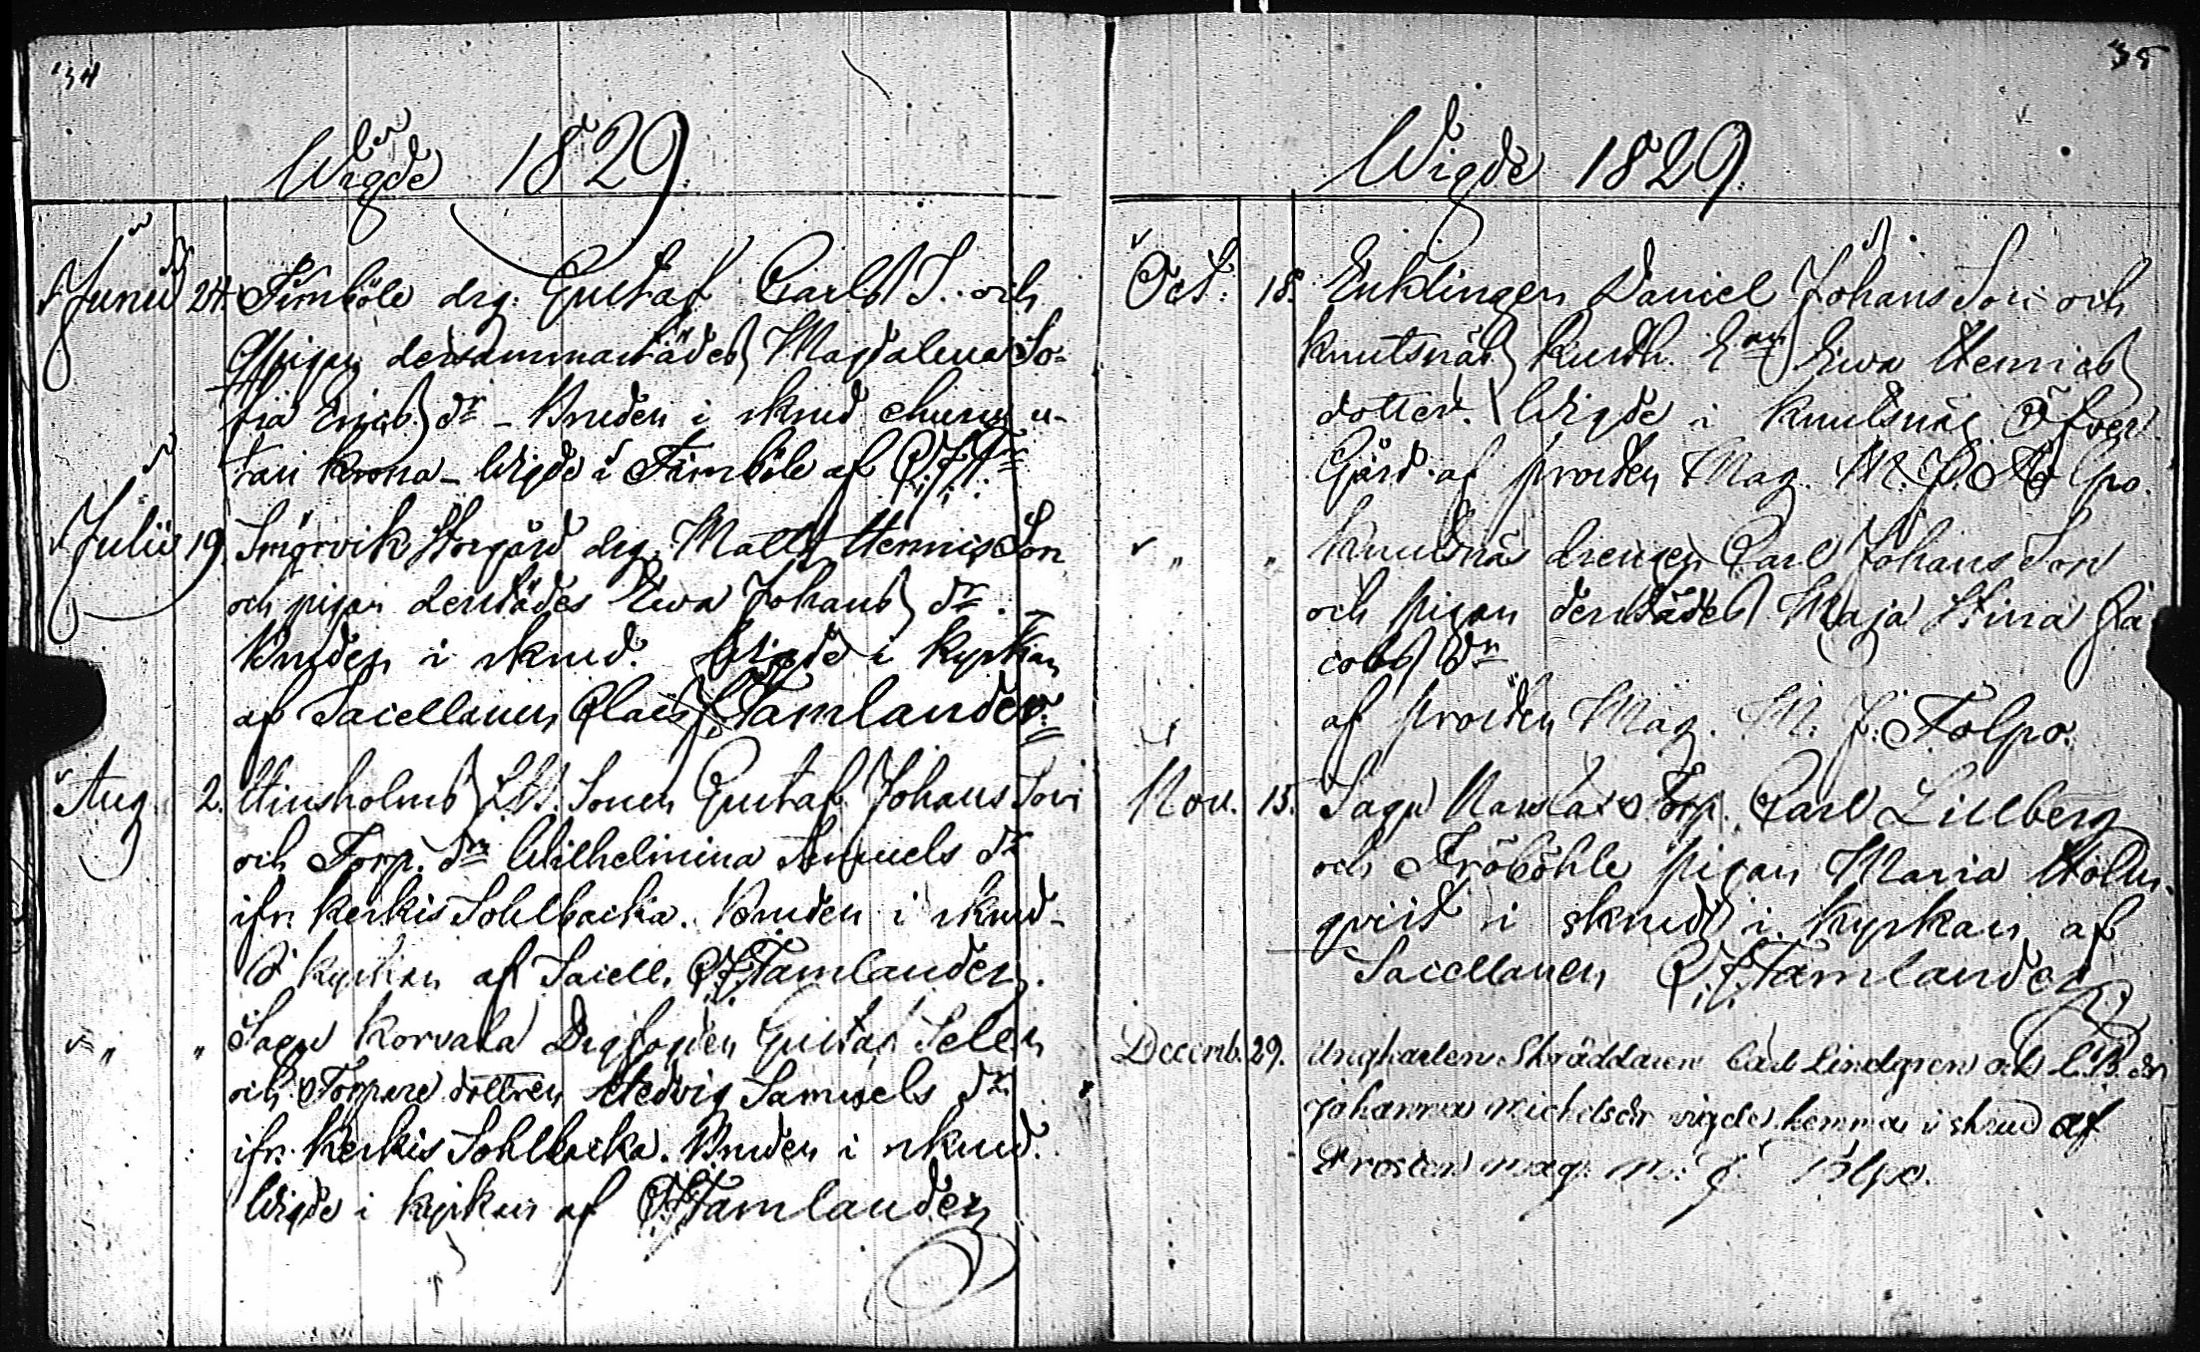 34
Wigde 1829.
Junii 24. Fimböle drg. Gustaf Carls S. och
Pigan dersammastädes Magdalena So-
fia Erics dr - Bruden i skrud ehuru u-
tan Krona - Wigde i Fimböle af C. F. Tr
Julii 19. Smörvik Storgård drg. Matts Henrics Son
och pigan derstädes Ewa Johans dr.
Bruden i skrud. Wigde i Kyrkan
af Sacellanen Claës F. Tamlander.
Aug. 2. Hinsholms Sonen Gustaf Johans Son
och Torp. dr Wilhelmina Samuels dr
ifr. Kerkis Sohlbacka. Bruden i skrud-
i kyrkan af Sacell. C. F. Tamlander.
" " Sagu Korvala Drgfogden Gustaf Selen
och Torpare dottren Hedvig Samuels dr
ifr. Kerkis Sohlbacka. Bruden i skrud.
Wigde i kyrkan af C. F. Tamlander
35
Wigde 1829.
Oct. 18. Enklingen Daniel Johans Son och
Knutsnäs Ewa Henrics
dotter. Wigde i Knutsnäs Öfver
Gård af prosten Mag. M. J. Tolpo.
" " Knutsnäs drengen Carl Johans Son
och pigan derstädes Maja Stina Ja
cobs dr
af prosten Mag. M. J. Tolpo.
Nov. 15. Sagu Torp. Carl Lillberg
och Fröböhle pigan Maria Holm-
qvist i skrud i kyrkan af
Sacellanen C. F. Tamlander
Decemb. 29. Ungkarlen Skräddaren Carl Lindgren och dr
Johanna Michelsdr vigde hemma i skrud af
Prosten mag. M. J. Tolpo.